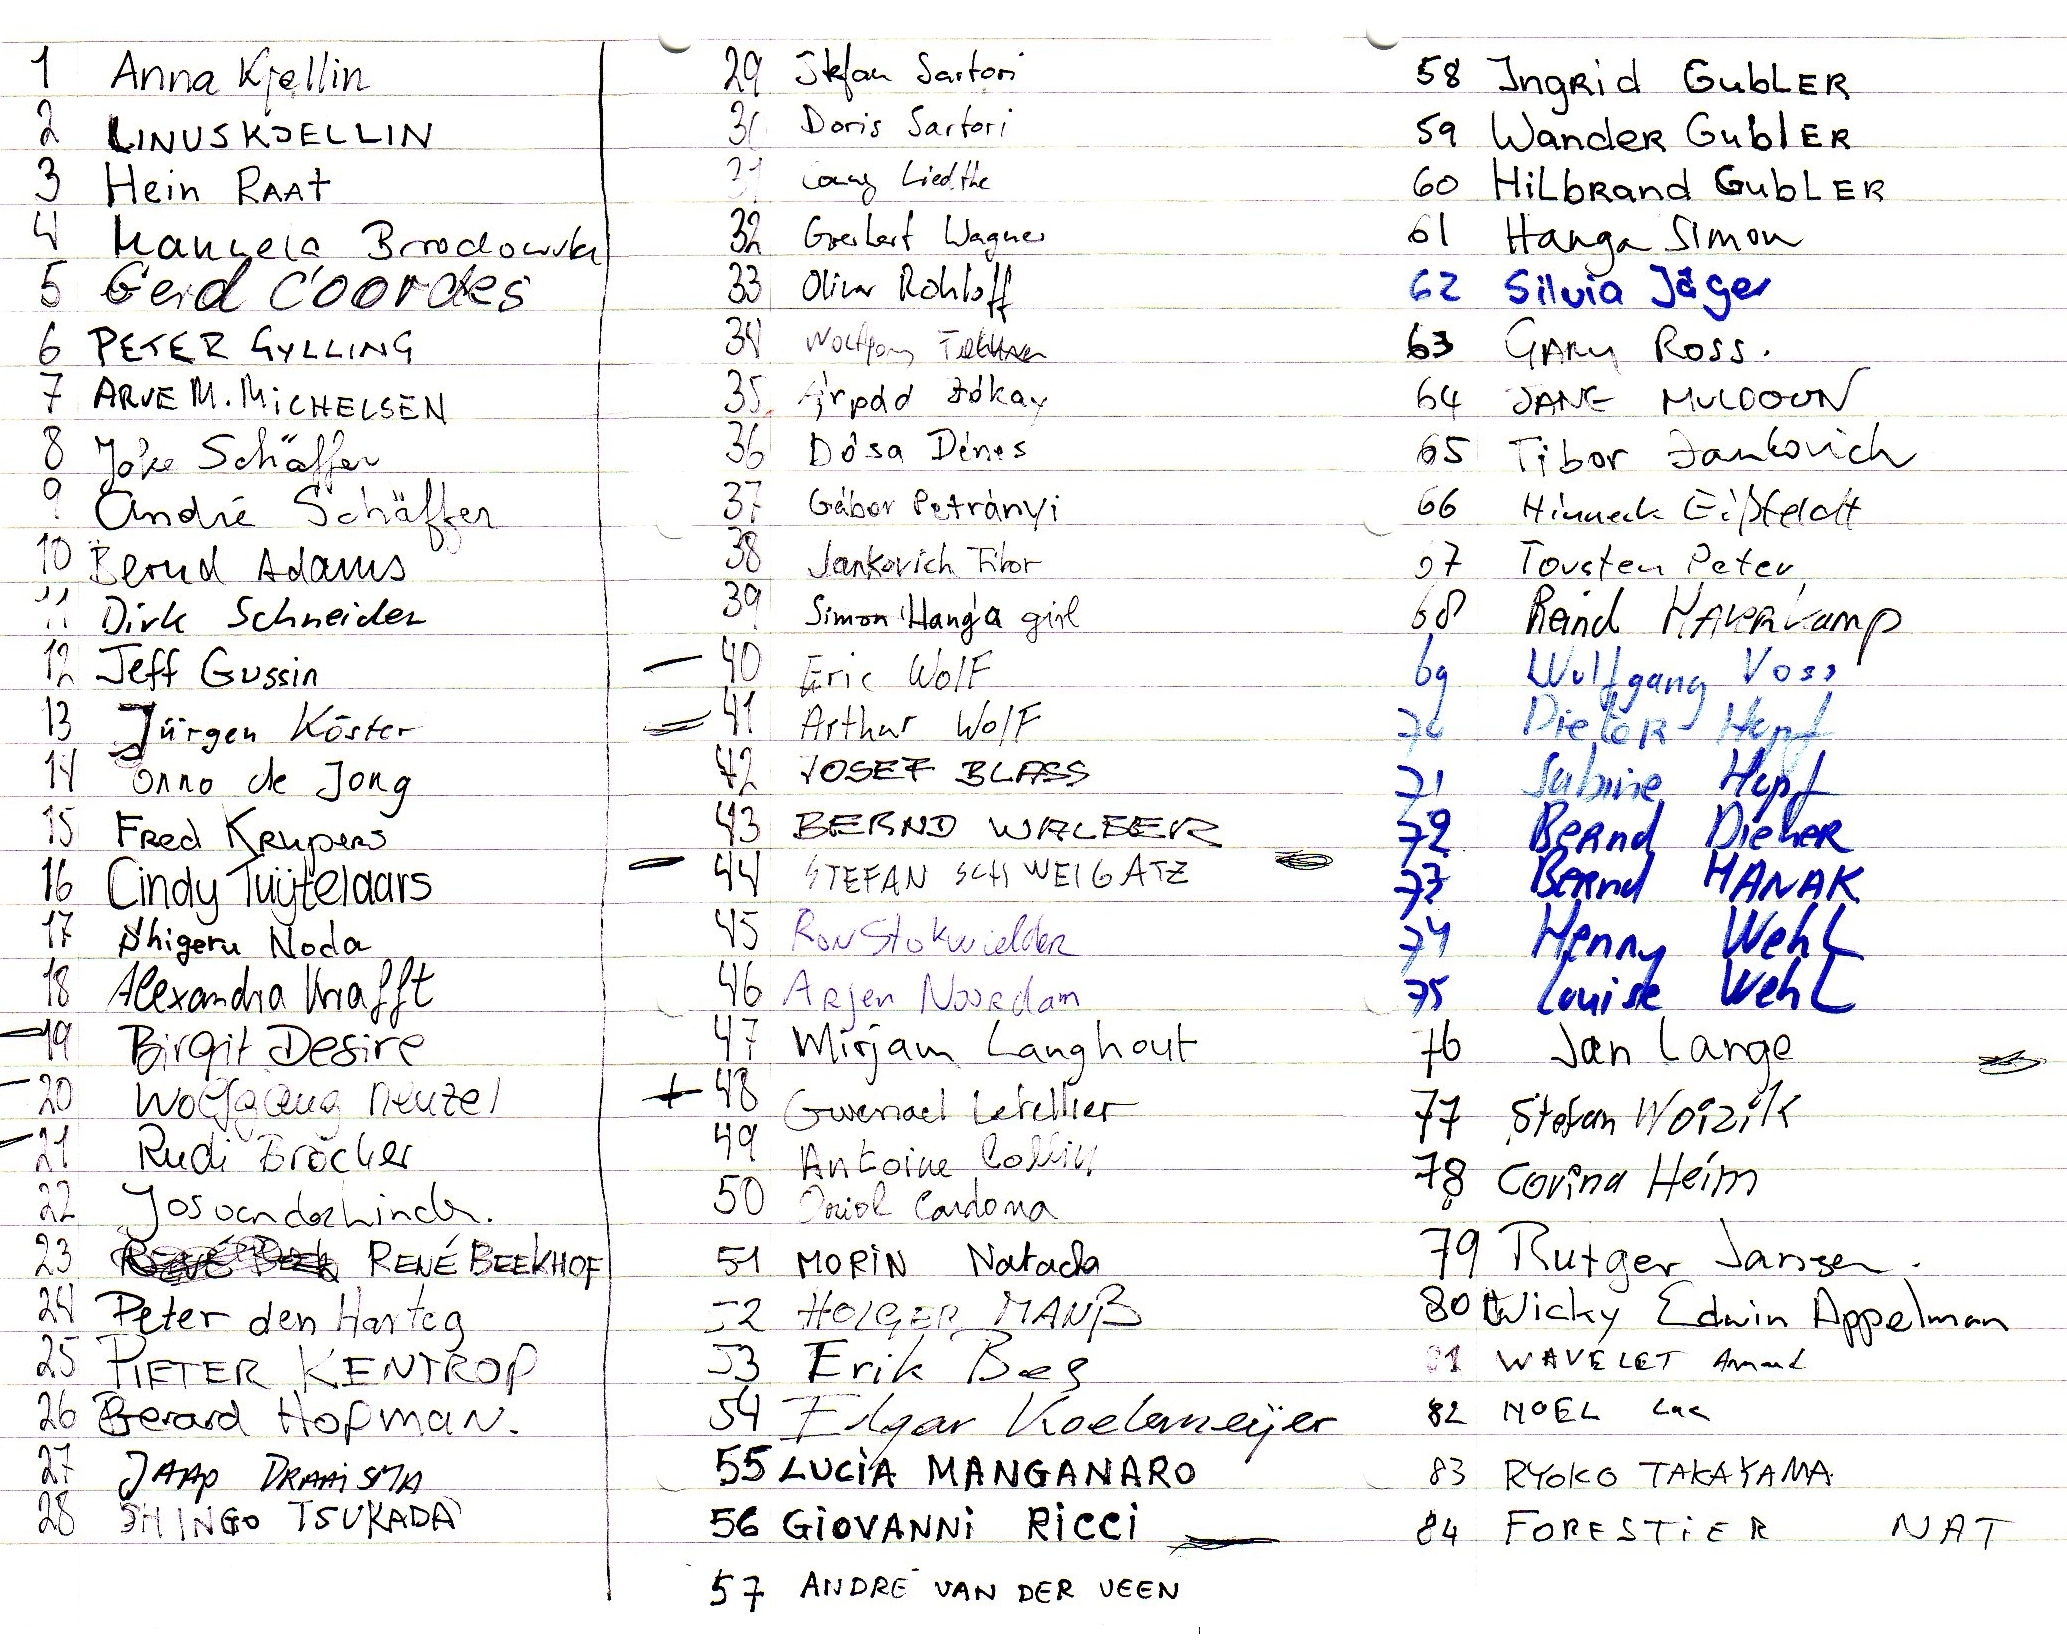 1 Anna Kjellin
2 LINUS KJELLIN
3 Hein RAAt
4 Manuela Brodowski
5 Gerd Coordes
6 PETER GYLLING
7 ARVE M. MiCHELSEN
8 Schäffer
9 André Schäffer
10 Bernd Adams
11 Dirk Schneider
12 Jeff Gussin
13 Jürgen Köster
14 Onno de Jong
15 Fred Krupers
16 Cindy Tuijtelaars
17 Shigeru Noda
18 Alexandra Krafft
19 Birgit Desire
20 Wolfgang Menzel
21 Rudi Bröcker
22 Jos van der Linden.
23 RENÉ BEEKHOF
24 Peter den Hartog
25 PIETER KENTROP
26 Gerard Hofman.
27 JAAP DRAAiSMA
28 SHINGO TSUKADA
29 Stefan Sartori
30 Doris Sartori
31 Conny Liedtke
32 Wagner
33 Oliver Rohloff
34 Wolfgang
35 Árpád Zókay
36 Dósa Dénes
37 Gábor Petrányi
38 Jankovich Tibor
39 Simon Hanga girl
40 Eric Wolf
41 Arthur Wolf
42 JOSEF BLASS
43 BERND WALBER
44 STEFAN SCHWEIGATZ
45 Ron Stokwielder
46 Arjen Noordam
47 Mirjam Langhout
48 Gwenael Letellier
49 Antoine Collin
50 Oriol Cardona
51 MORiN Natacha
52 HOLGER MANß
53 Erik Bes
54 Edgar Koelemeijer
55 LUCiA MANGANARO
56 GiOVANNi RiCCi
57 ANDRÉ VAN DER VEEN
58 Ingrid GubLER
59 WandeR GublER
60 HiLbrand GubLER
61 Hanga Simon
62 Silvia Jäger
63 GARY ROSS.
64 JANE MULDOON
65 Tibor Jankovich
66 Hinnerk Eißfeldt
67 Torsten Peter
68 Reind HAVERkamp
69 Wolfgang Voss
70 DieteR Hupf
71 Sabine Hupf
72 BeRnd DieneR
73 BeRnd MANAK
74 Henny WehL
75 Louise WehL
76 Jan Lange
77 Stefan Woizik
78 Corina Heim
79 Rutger Jansen.
80 Wicky Edwin Appelman
81 WAVELET Arnaud
82 NOEL Luc
83 RYOKO TAKAYAMA
84 FORESTiER NAT